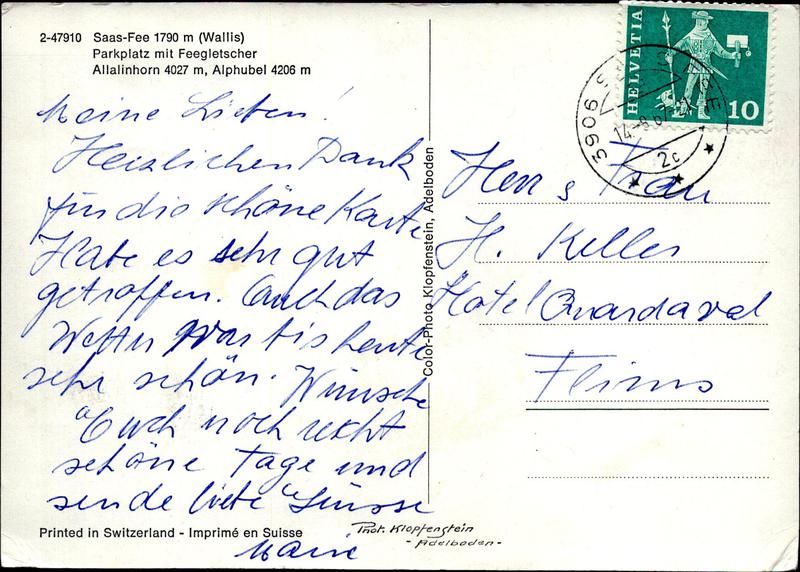 2-47910 Saas-Fee 1790 m (Wallis)
Parkplatz mit Feegletscher
Allalinhorn 4027 m, Alphubel 4206 m
Meine Lieben!
Herzlichen Dank
für die schöne Karte
Habe es sehr gut
getroffen. Auch das
Wetter war bis heute
sehr schön. Wünsche
Euch noch recht
schöne Tage und
sende liebe Grüsse
Marie
Printed in Switzerland - Imprimé en Suisse
Phot. Klopfenstein
- Adelboden -
Color-Photo Klopfenstein, Adelboden
HELVETIA
10
3906
2c
Herr & Frau
H. Keller
Hotel Quardaval
Flims